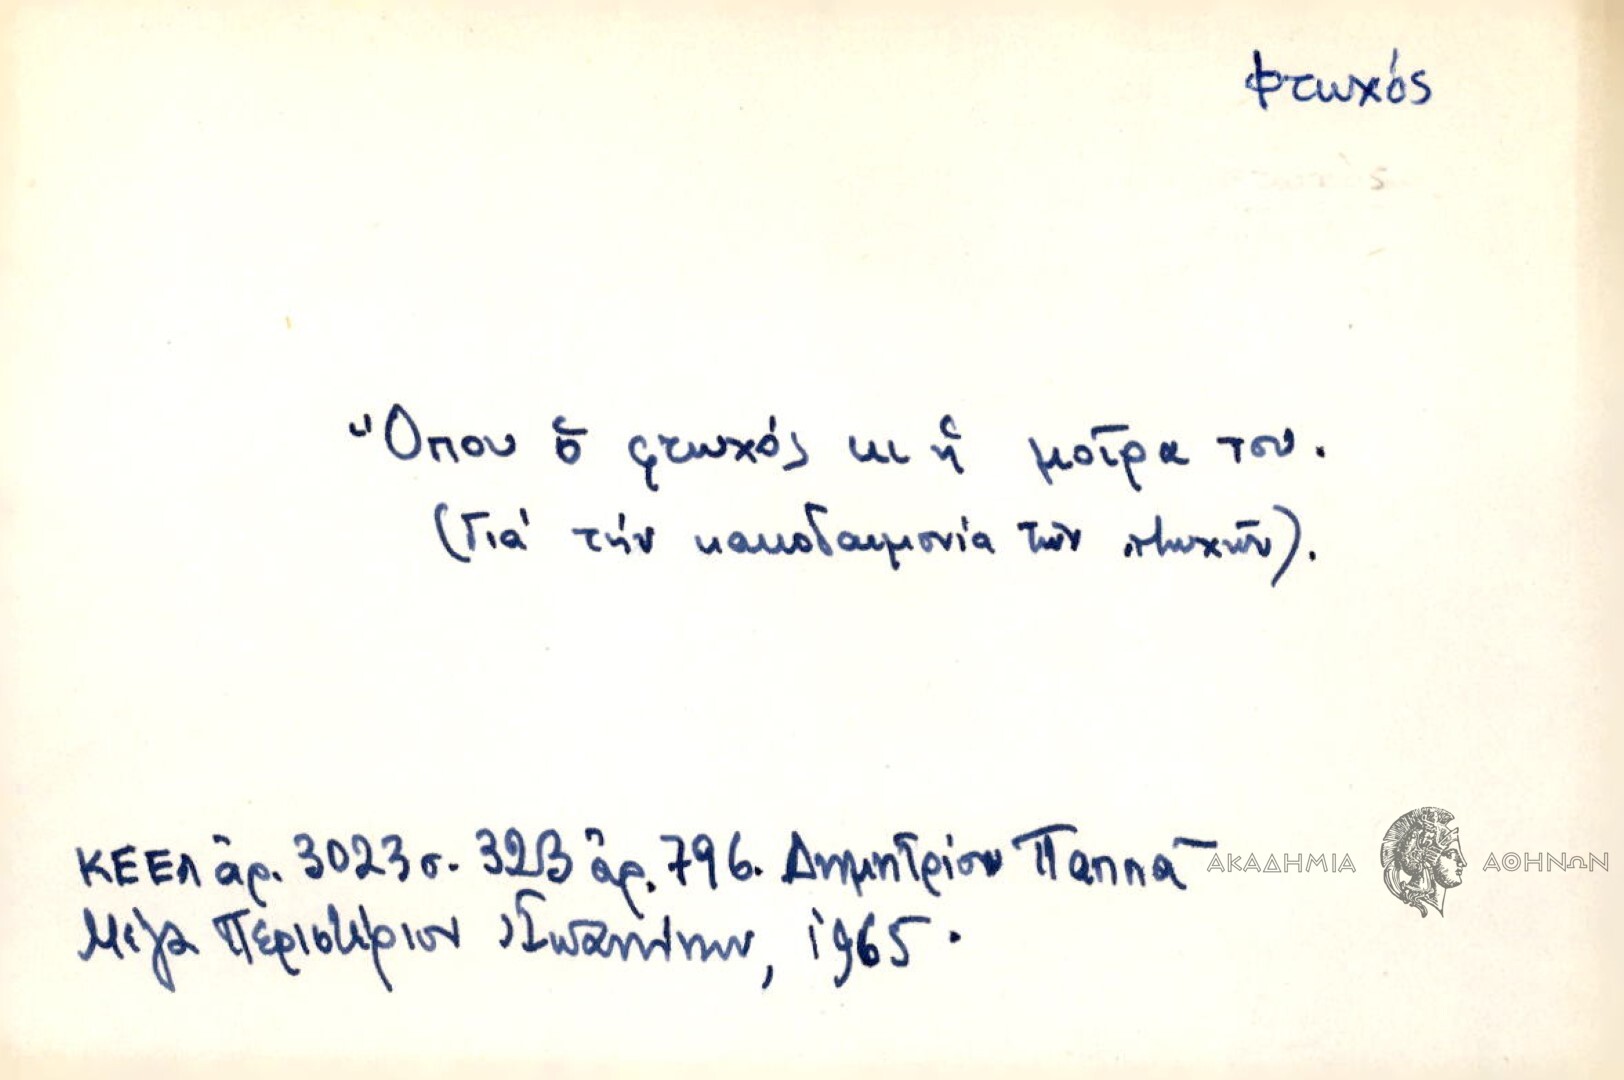 φτωχός
Ὅπου ὁ φτωχός κι ἡ μοῖρα του.
(Γιά τήν κακοδαιμονία τῶν πτωχῶν).
ΚΕΕΛ ἀρ. 3023 σ. 323 ἀρ. 796. Δημητρίου Παππᾶ
Μέγα Περιστέριον Ἰωαννίνων, 1965.
ΑΚΑΔΗΜΙΑ ΑΘΗΝΩΝ